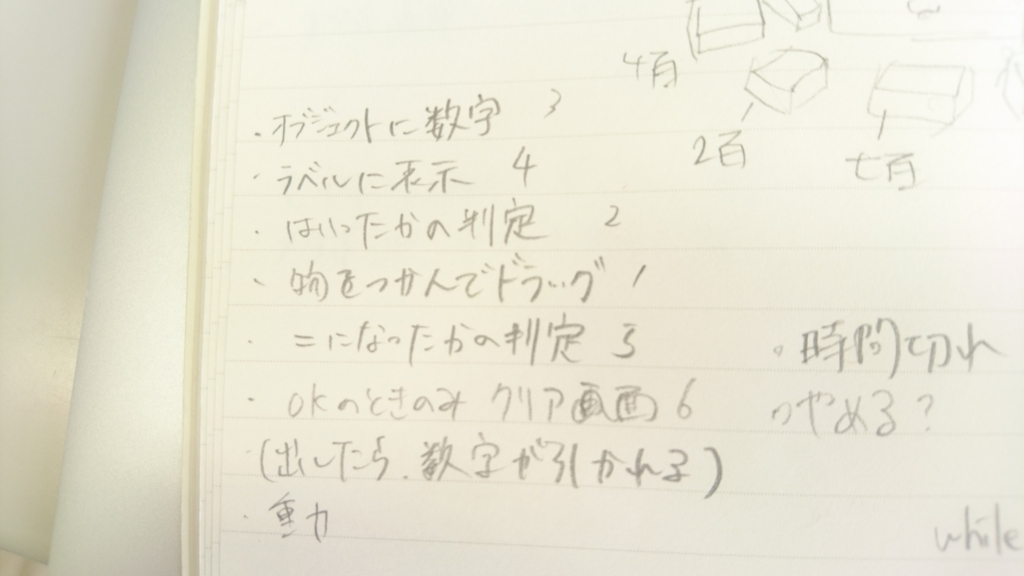 4百
2百
七百
・オブジェクトに数字 3
・ラベルに表示 4
・はいったかの判定 2
・物をつかんでドラッグ 1
・=になったかの判定 5
・OKのときのみ クリア画面 6
(出したら、数字が引かれる)
・重力
。時間切れ
。やめる?
while